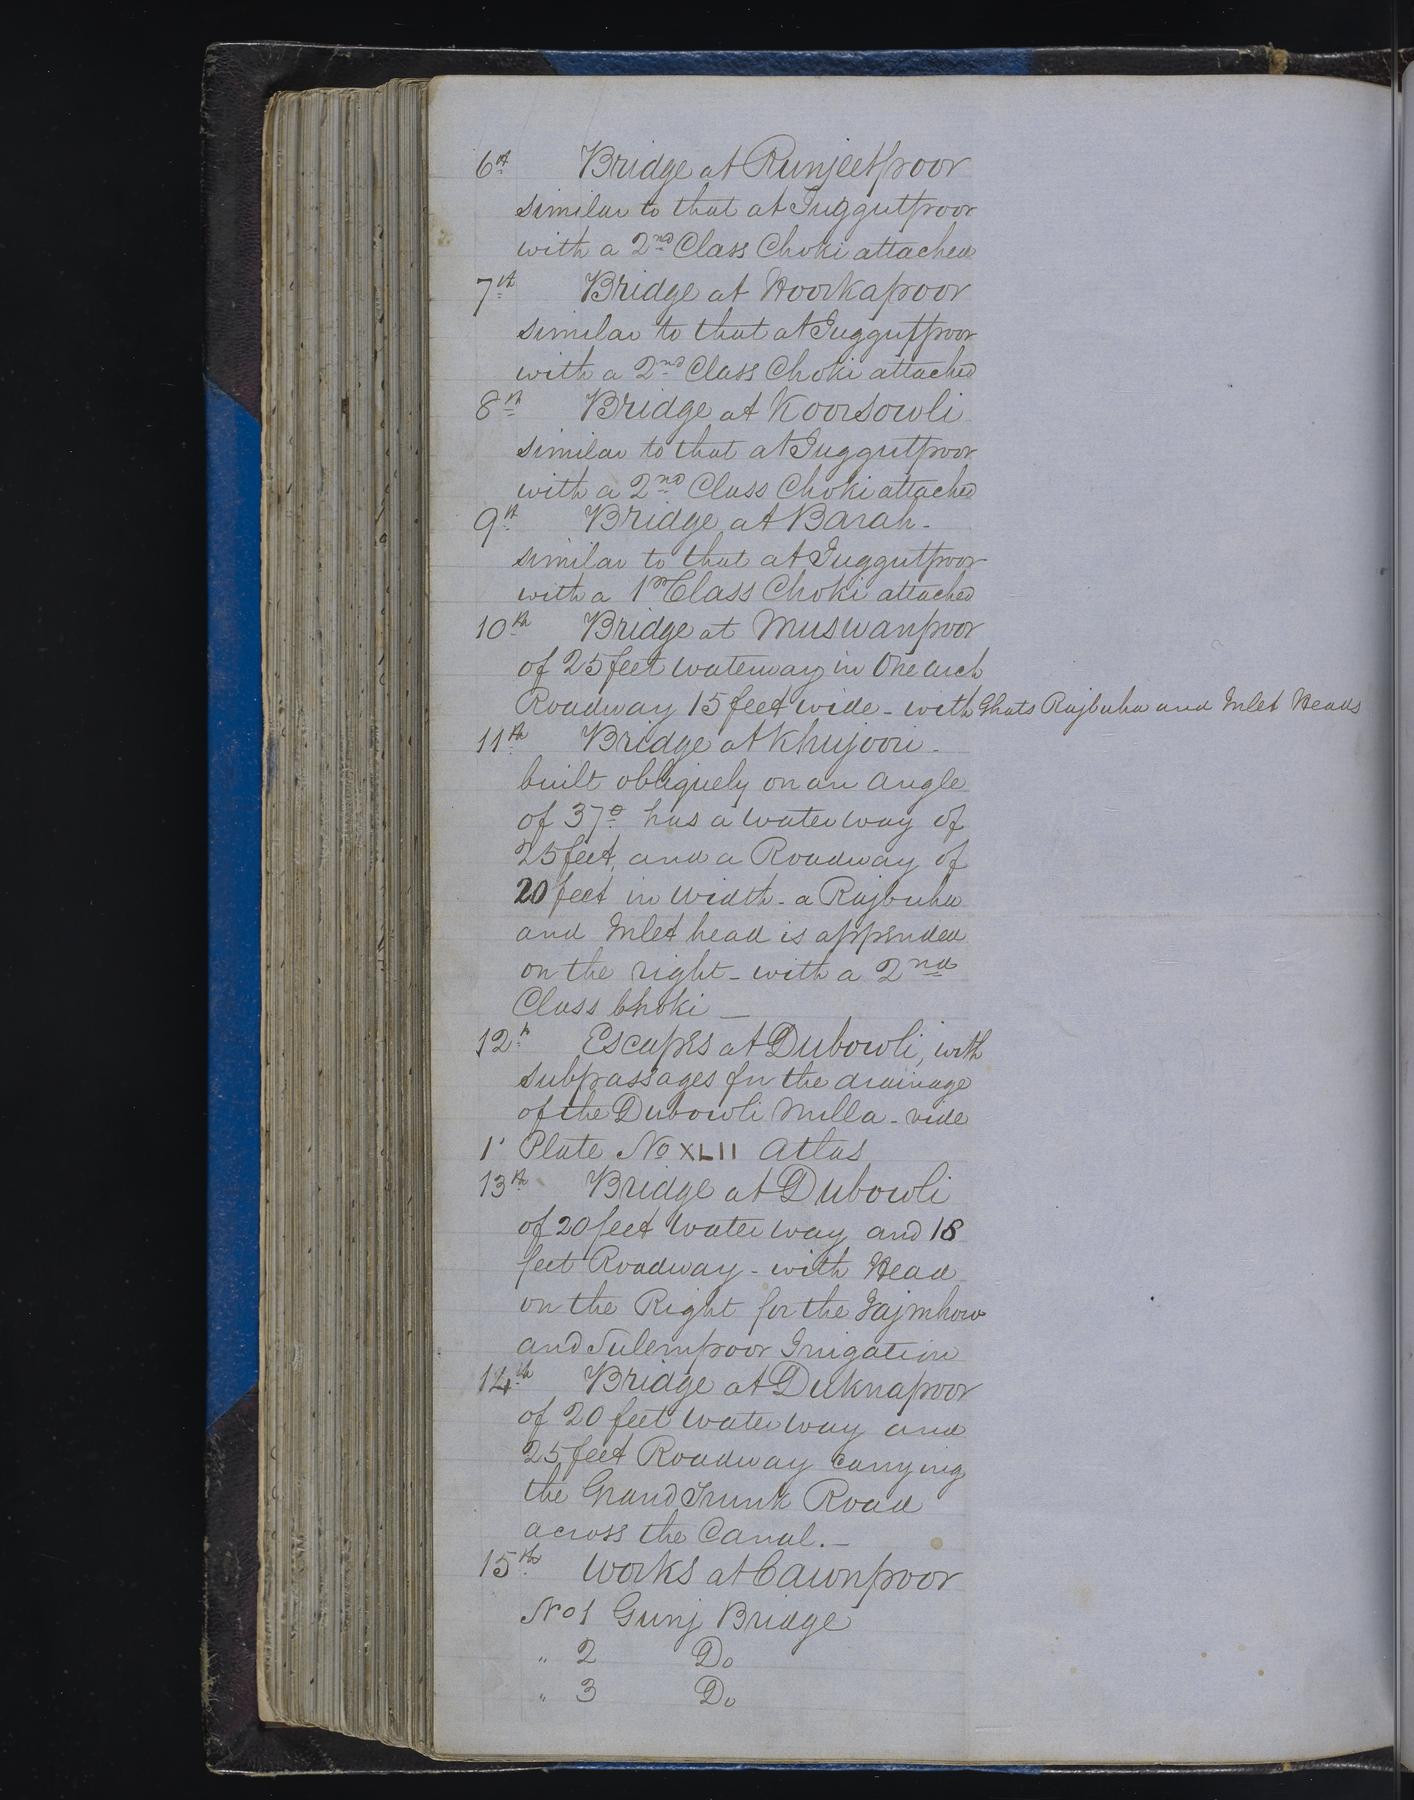 6th Bridge at Runjeetpoor
similar to that at Juggutpoor
with a 2nd Class Choki attached
7th Bridge at Hoorkapoor
similar to that at Juggutpoor
with a 2nd Class Choki attached
8th Bridge at Koorsowli
similar to that at Juggutpoor
with a 2nd Class Choki attached
9th Bridge at Barah -
similar to that at Juggutpoor
with a 1st Class Choki attached
10th Bridge at Muswanpoor
of 25 feet waterway in One arch
Roadway 15 feet wide - with Ghats Rajbuha and Inlet Heads
11th Bridge at Khujoori -
built obliquely on an angle
of 37° has a waterway of
25 feet, and a Roadway of
20 feet in width - a Rajbuha
and Inlet head is appended
on the right - with a 2nd
Class Choki —
12th Escapes at Dubowli, with
subpassages for the drainage
of the Dubowli Nulla - vide
1' Plate No XLII Atlas
13th Bridge at Dubowli
of 20 feet water way and 18
feet Roadway - with Head
on the Right for the Jajmhow
and Sulempoor Irrigation
14th Bridge at Duknapoor
of 20 feet water way and
25 feet Roadway carrying
the Grand Trunk Road
across the Canal. —
15th Works at Cawnpoor
No 1 Gunj Bridge
" 2 Do
" 3 Do